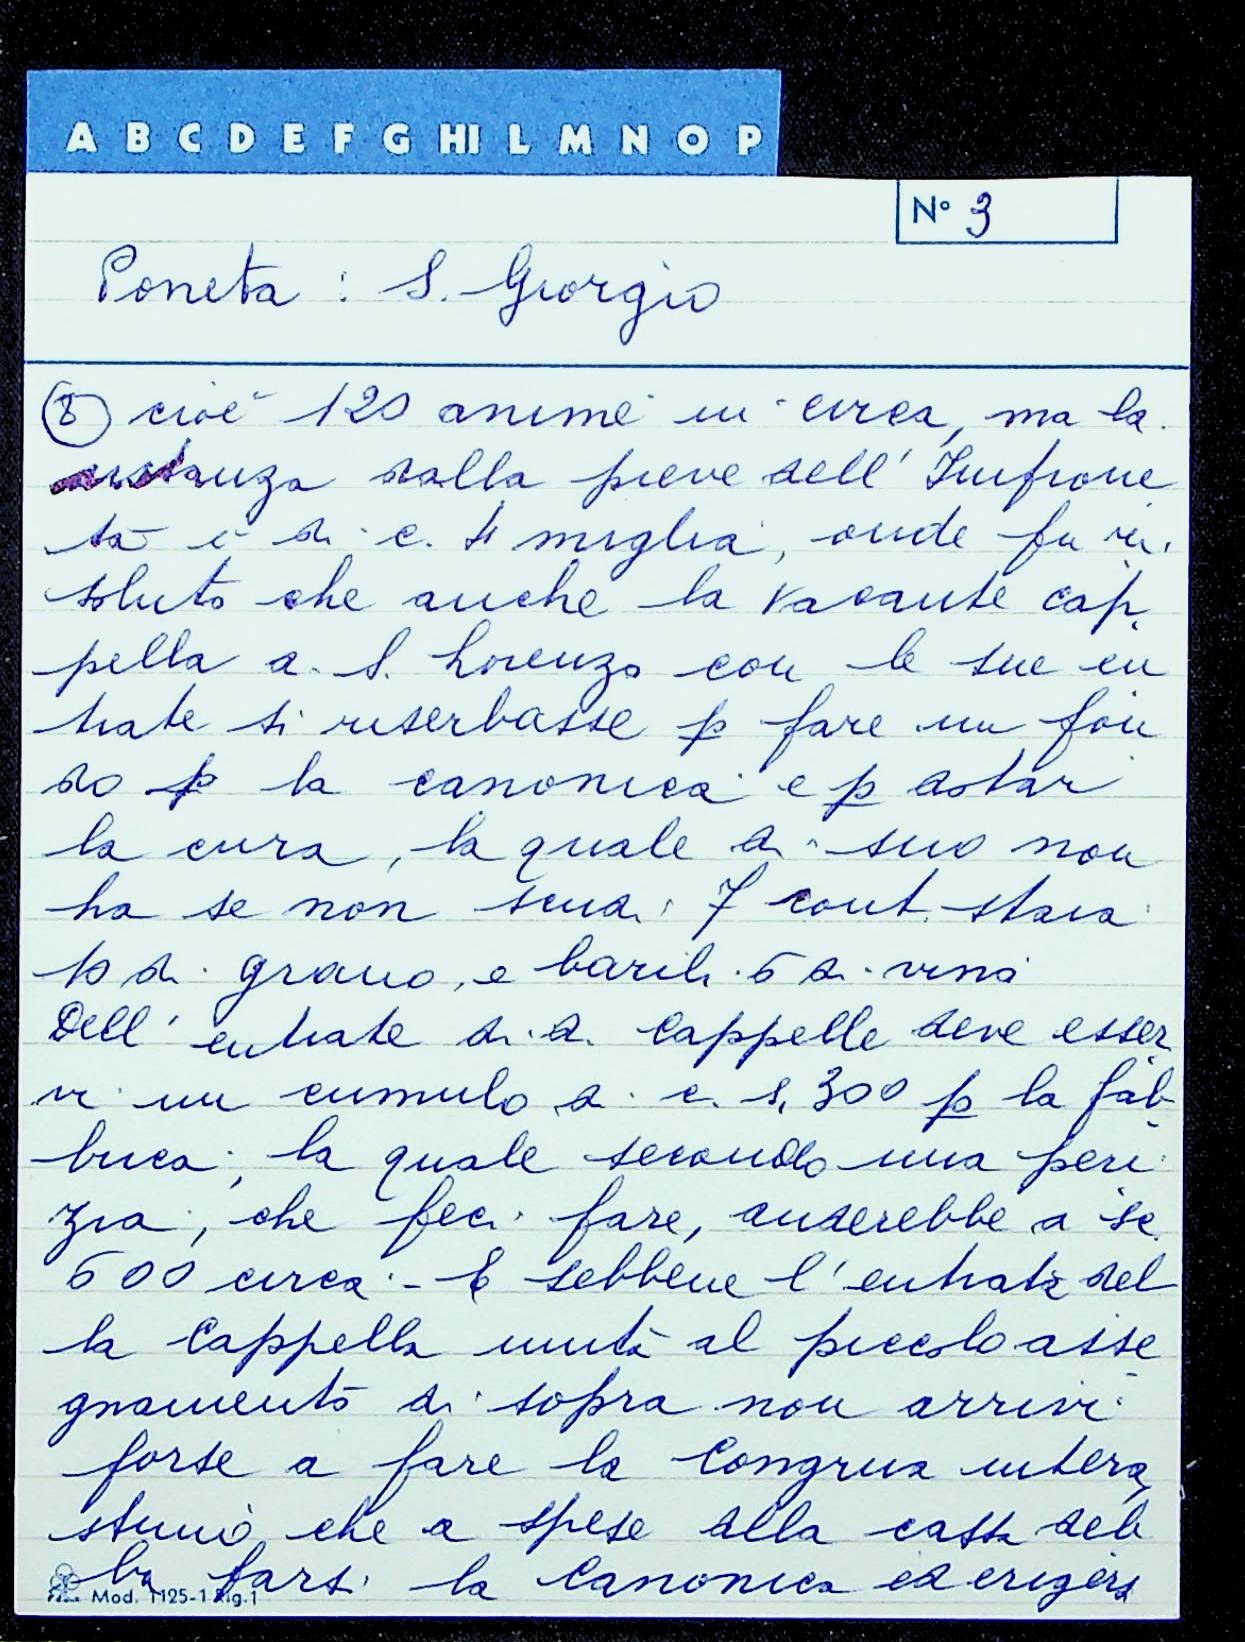 A B C D E F G HI L M N O P
N° 3
Poneta : S. Giorgio
8 cioè 120 anime in circa, ma la
distanza dalla pieve dell' Imprune
ta è di c. 4 miglia, onde fu ri.
soluto che anche la vacante cap
pella di S. Lorenzo con le sue en
trate si riserbasse p fare un fon
do p la canonica e p dotar
la cura, la quale di suo non
ha se non scudi 7 cont. staia
10 di grano, e barili 5 di vino
Dell' entrate di d. Cappelle deve esser
vi un cumulo di c. s. 300 p la fab
brica; la quale secondo una peri
zia, che feci fare, anderebbe a sc.
600 circa. - E sebbene l'entrata del
la Cappella unita al piccolo asse
gnamento di sopra non arrivi
forse a fare la Congrua intera,
stimo che a spese della cassa deb
ba farsi la Canonica ed erigersi
Mod. 1125-1 Rig.1